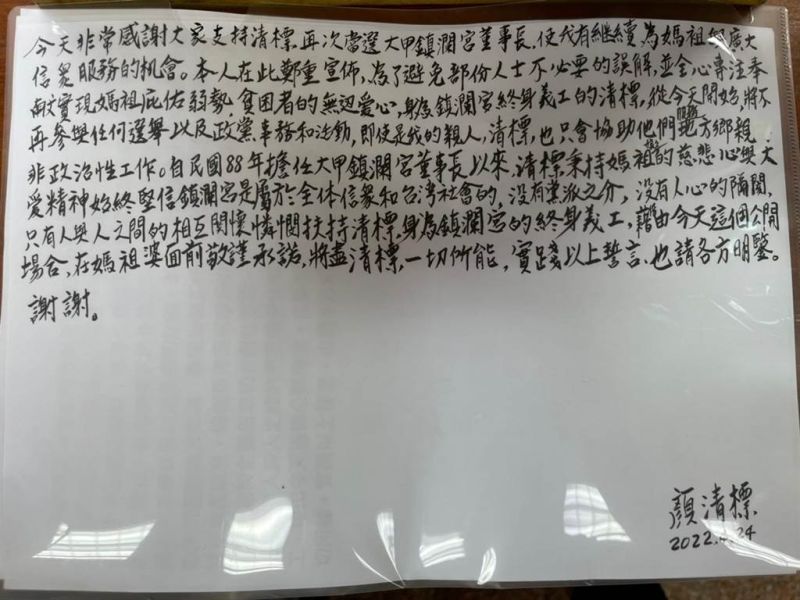 今天非常感謝大家支持清標,再次當選大甲鎮瀾宮董事長,使我有繼續為媽祖與廣大
信眾服務的机會。本人在此鄭重宣佈,為了避免部份人士不必要的誤解,並全心專注奉
獻實現媽祖庇佑弱勢,貧困者的無边爱心,身為鎮瀾宮終身義工的清標,從今天開始,將不
再參與任何選舉以及政黨事務和活動,即使是我的親人,清標,也只會協助他們地方鄉親
非政治性工作。自民國88年擔任大甲鎮瀾宮董事長以來,清標秉持媽祖的慈悲心與大
愛精神始終堅信鎮瀾宮是屬於全体信眾和台灣社會的,沒有黨派之分,沒有人心的隔閡,
只有人與人之間的相互関懷憐憫扶持清標,身為鎮瀾宮的終身義工,藉由今天這個公開
場合,在媽祖婆面前敬謹承諾,將盡清標,一切所能,實踐以上誓言,也請各方明鑒。
謝謝。
顏清標
2022.4.24